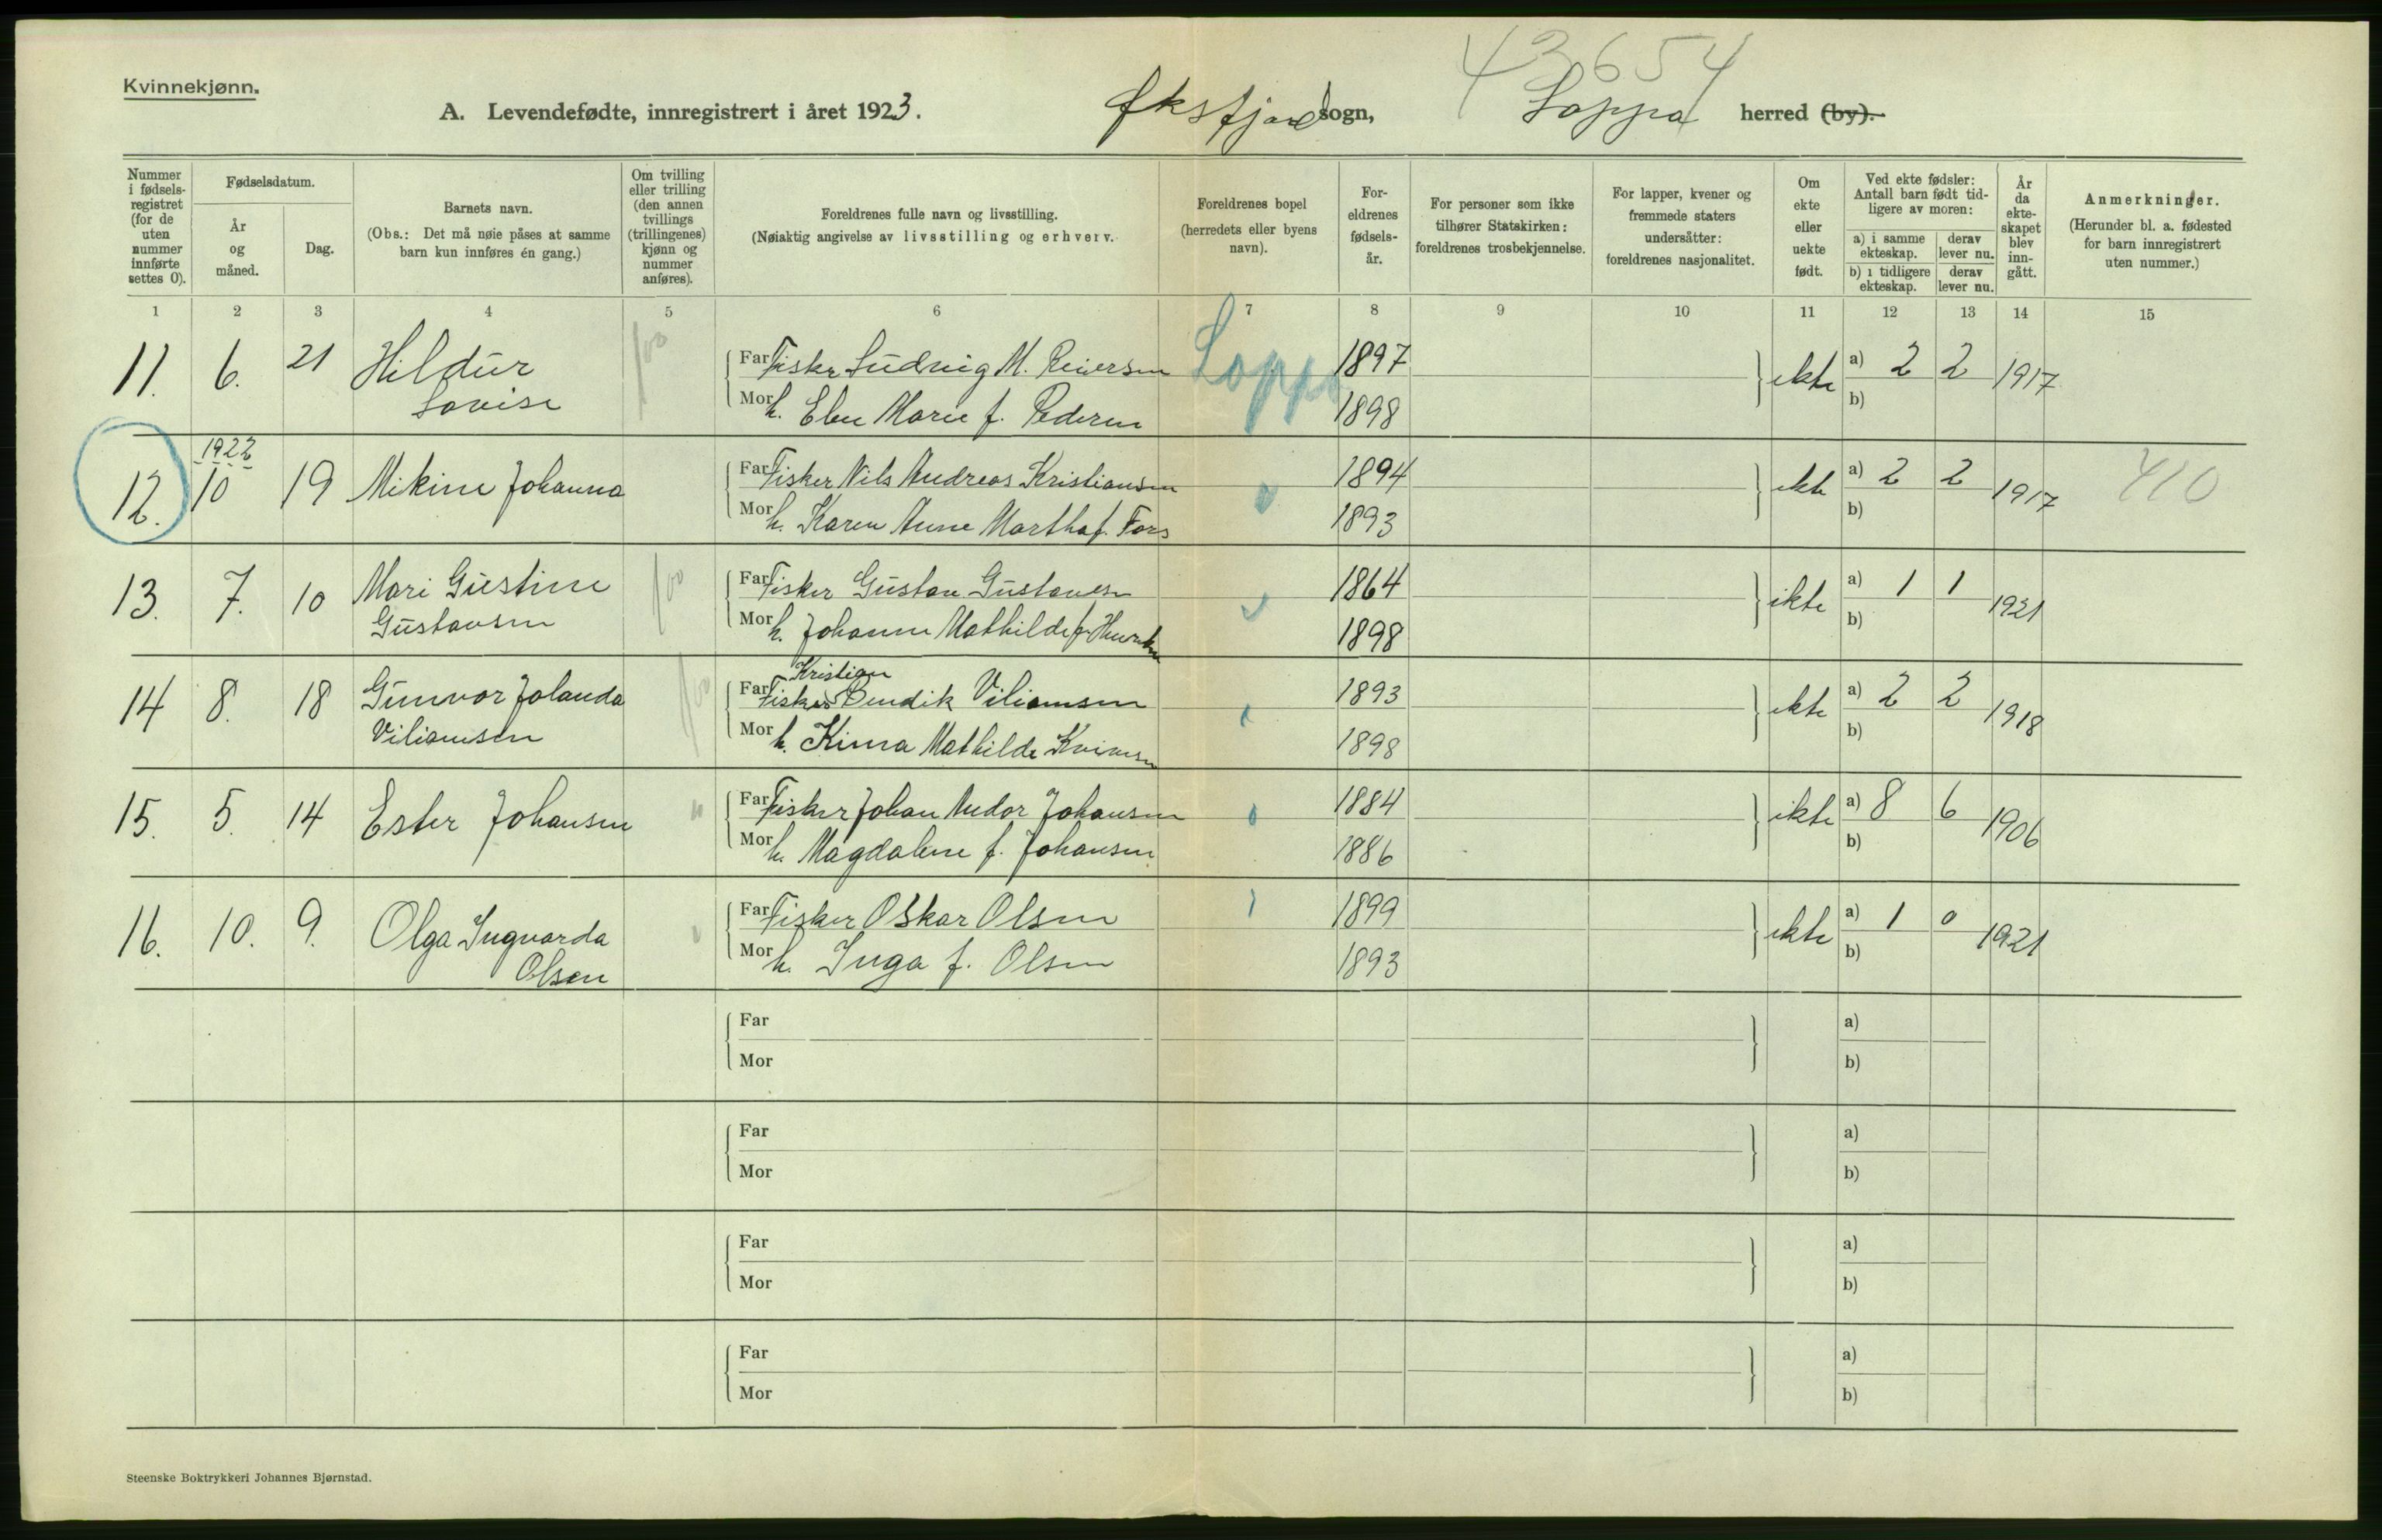 43654
Kvinnekjønn.
A. Levendefødte, innregistrert i året 1923. Øksfjord sogn, Loppa herred (by).
Nummer i fødselsregistret (for de uten nummer innførte settes 0).
Fødselsdatum.
År og måned.
Dag.
Barnets navn.
(Obs.: Det må nøie påses at samme barn kun innføres én gang.)
Om tvilling eller trilling (den annen tvillings (trillingenes) kjønn og nummer anføres).
Foreldrenes fulle navn og livsstilling.
(Nøiaktig angivelse av livsstilling og erhverv.
Foreldrenes bopel (herredets eller byens navn).
Foreldrenes fødselsår.
For personer som ikke tilhører Statskirken: foreldrenes trosbekjennelse.
For lapper, kvener og fremmede staters undersåtter: foreldrenes nasjonalitet.
Om ekte eller uekte født.
Ved ekte fødsler: Antall barn født tidligere av moren:
a) i samme ekteskap. derav lever nu.
b) i tidligere ekteskap. derav lever nu.
År da ekteskapet blev inngått.
Anmerkninger.
(Herunder bl. a. fødested for barn innregistrert uten nummer.)
1 2 3 4 5 6 7 8 9 10 11 12 13 14 15
11. 6. 21 Hildur Far Fisker Ludvig M. Reiersen Loppa 1897 ekte a) 2 2 1917
Lovise Mor h. Elen Marie f. Pedersen 1898 b)
1922
12. 10 19 Mikine Johanna Far Fisker Nils Andreas Kristiansen 1894 ekte a) 2 2 1917 410
Mor h. Karen Anne Martha f. Fors 1893 b)
13. 7. 10 Mari Gustine Far Fisker Gustav Gustavsen 1864 ekte a) 1 1 1921
Gustavsen Mor h. Johanne Mathilde f. Henriksen 1898 b)
Kristian
14 8. 18 Gunvor Jolanda Far Fisker Bendik Viliamsen 1893 ekte a) 2 2 1918
Viliamsen Mor h. Kinna Mathilde 1898 b)
15. 5. 14 Ester Johansen Far Fisker Johan Andor Johansen 1884 ekte a) 8 6 1906
Mor h. Magdalene f. Johansen 1886 b)
16. 10. 9. Olga Ingvarda Far Fisker Oskar Olsen 1899 ekte a) 1 0 1921
Olsen Mor h. Inga f. Olsen 1893 b)
Far a)
Mor b)
Far a)
Mor b)
Far a)
Mor b)
Far a)
Mor b)
Steenske Boktrykkeri Johannes Bjørnstad.